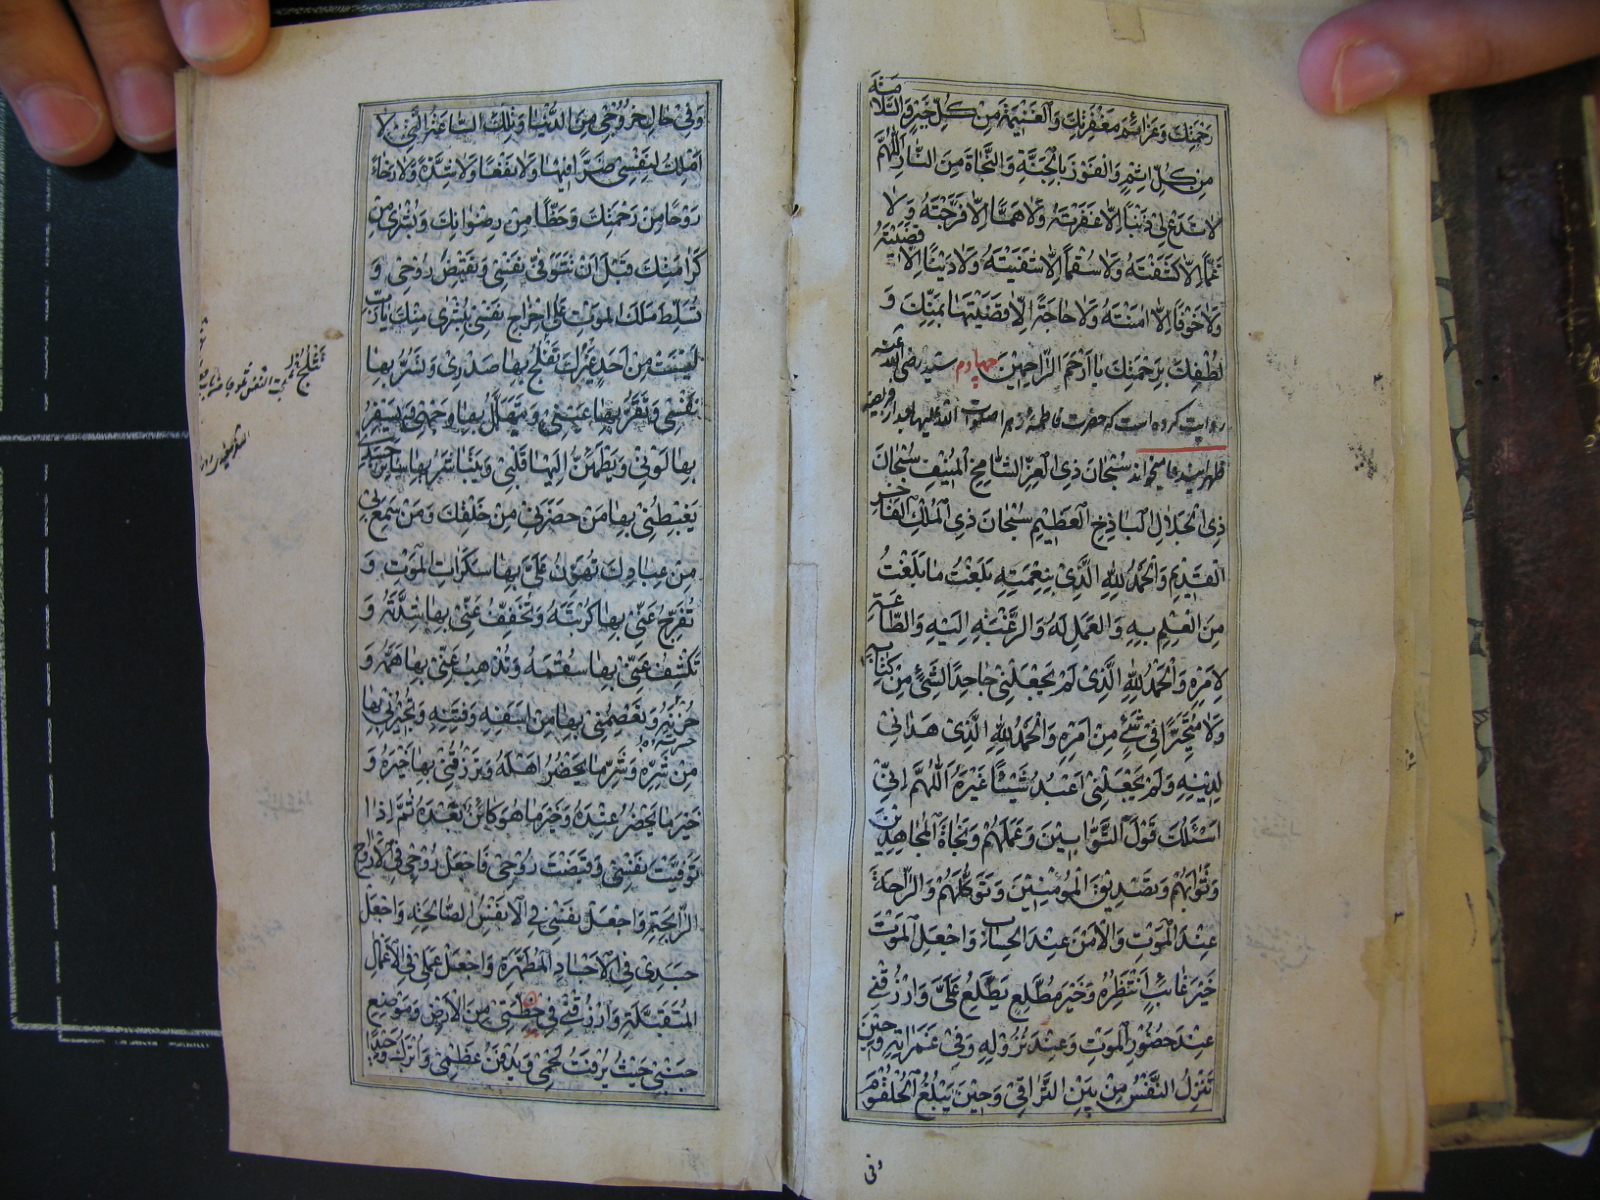 رَحْمَتِكَ وَعَزَائِمَ مَغْفِرَتِكَ وَالْغَنِيمَةَ مِنْ كُلِّ خَيْرٍ وَالسَّلَامَةَ
مِنْ كُلِّ اِثْمٍ وَالْفَوْزَ بِالْجَنَّةِ وَالنَّجَاةَ مِنَ النَّارِ اَللّٰهُمَّ
لَا تَدَعْ لِي ذَنْبًا اِلَّا غَفَرْتَهُ وَلَا هَمًّا اِلَّا فَرَّجْتَهُ وَلَا
غَمًّا اِلَّا كَشَفْتَهُ وَلَا سُقْمًا اِلَّا شَفَيْتَهُ وَلَا دَيْنًا اِلَّا قَضَيْتَهُ
وَلَا خَوْفًا اِلَّا اٰمَنْتَهُ وَلَا حَاجَةً اِلَّا قَضَيْتَهَا بِمَنِّكَ وَ
لُطْفِكَ بِرَحْمَتِكَ يَا اَرْحَمَ الرَّاحِمِيْنَ چهارم سيد رضى الله عنه
روايت كرده است كه حضرت فاطمهٔ زهرا صلوات الله عليها بعد از فريضه
ظهر ميخواند سُبْحَانَ ذِي الْعِزِّ الشَّامِخِ الْمُنِيْفِ سُبْحَانَ
ذِي الْجَلَالِ الْبَاذِخِ الْعَظِيْمِ سُبْحَانَ ذِي الْمُلْكِ الْفَاخِرِ
الْقَدِيْمِ وَالْحَمْدُ لِلّٰهِ الَّذِيْ بِنِعْمَتِهِ بَلَغْتُ مَا بَلَغْتُ
مِنَ الْعِلْمِ بِهِ وَالْعَمَلِ لَهُ وَالرَّغْبَةِ اِلَيْهِ وَالطَّاعَةِ
لِاَمْرِهِ وَالْحَمْدُ لِلّٰهِ الَّذِيْ لَمْ يَجْعَلْنِيْ جَاحِدًا لِشَيْءٍ مِنْ كِتَابِهِ
وَلَا مُتَحَيِّرًا فِيْ شَيْءٍ مِنْ اَمْرِهِ وَالْحَمْدُ لِلّٰهِ الَّذِيْ هَدَانِيْ
لِدِيْنِهِ وَلَمْ يَجْعَلْنِيْ اَعْبُدُ شَيْئًا غَيْرَهُ اَللّٰهُمَّ اِنِّيْ
اَسْئَلُكَ قَوْلَ التَّوَّابِيْنَ وَعَمَلَهُمْ وَنَجَاةَ الْمُجَاهِدِيْنَ
وَثَوَابَهُمْ وَتَصْدِيْقَ الْمُؤْمِنِيْنَ وَتَوَكُّلَهُمْ وَالرَّاحَةَ
عِنْدَ الْمَوْتِ وَالْاَمْنَ عِنْدَ الْحِسَابِ وَاجْعَلِ الْمَوْتَ
خَيْرَ غَائِبٍ اَنْتَظِرُهُ وَخَيْرَ مُطَّلِعٍ يَطَّلِعُ عَلَيَّ وَارْزُقْنِيْ
عِنْدَ حُضُوْرِ الْمَوْتِ وَعِنْدَ نُزُوْلِهِ وَفِيْ غَمَرَاتِهِ وَحِيْنَ
تَنْزِلُ النَّفْسُ مِنْ بَيْنِ التَّرَاقِيْ وَحِيْنَ يَبْلُغُ الْحُلْقُوْمَ
وفى
وَفِيْ حَالِ خُرُوْجِيْ مِنَ الدُّنْيَا وَتِلْكَ السَّاعَةِ الَّتِيْ لَا
اَمْلِكُ لِنَفْسِيْ ضَرًّا فِيْهَا وَلَا نَفْعًا وَلَا شِدَّةً وَلَا رَخَاءً
رَوْحًا مِنْ رَحْمَتِكَ وَحَظًّا مِنْ رِضْوَانِكَ وَبُشْرٰى مِنْ
كَرَامَتِكَ قَبْلَ اَنْ تَتَوَفّٰى نَفْسِيْ وَتَقْبِضَ رُوْحِيْ وَ
تُسَلِّطَ مَلَكَ الْمَوْتِ عَلٰى اِخْرَاجِ نَفْسِيْ بِبُشْرٰى مِنْكَ يَا رَبِّ
لَيْسَتْ مِنْ اَحَدٍ غَيْرِكَ تَثْلُجُ بِهَا صَدْرِيْ وَتَسُرُّ بِهَا
نَفْسِيْ وَتَقَرُّ بِهَا عَيْنِيْ وَيَتَهَلَّلُ بِهَا وَجْهِيْ وَيُسْفِرُ
بِهَا لَوْنِيْ وَيَطْمَئِنُّ اِلَيْهَا قَلْبِيْ وَيَتَبَاشَرُ بِهَا سَائِرُ جَسَدِيْ
يَغْبِطُنِيْ بِهَا مَنْ حَضَرَنِيْ مِنْ خَلْقِكَ وَمَنْ سَمِعَ بِيْ
مِنْ عِبَادِكَ تُهَوِّنُ عَلَيَّ بِهَا سَكَرَاتِ الْمَوْتِ وَ
تُفَرِّجُ عَنِّيْ بِهَا كُرْبَتَهُ وَتُخَفِّفُ عَنِّيْ بِهَا شِدَّتَهُ وَ
تَكْشِفُ عَنِّيْ بِهَا سُقْمَهُ وَتُذْهِبُ عَنِّيْ بِهَا هَمَّهُ وَ
حَسْرَتَهُ وَتَعْصِمُنِيْ بِهَا مِنْ اَسَفِهِ وَفِتْنَتِهِ وَتُجِيْرُنِيْ بِهَا
مِنْ شَرِّهِ وَشَرِّ مَا يَحْضُرُ اَهْلَهُ وَتَرْزُقُنِيْ بِهَا خَيْرَهُ وَ
خَيْرَ مَا يَحْضُرُ عِنْدَهُ وَخَيْرَ مَا هُوَ كَائِنٌ بَعْدَهُ ثُمَّ اِذَا
تُوُفِّيَتْ نَفْسِيْ وَقُبِضَتْ رُوْحِيْ فَاجْعَلْ رُوْحِيْ فِي الْاَرْوَاحِ
الرَّابِحَةِ وَاجْعَلْ نَفْسِيْ فِي الْاَنْفُسِ الصَّالِحَةِ وَاجْعَلْ
جَسَدِيْ فِي الْاَجْسَادِ الْمُطَهَّرَةِ وَاجْعَلْ عَمَلِيْ فِي الْاَعْمَالِ
الْمُتَقَبَّلَةِ وَارْزُقْنِيْ فِيْ خِطَّتِيْ مِنَ الْاَرْضِ وَمَوْضِعِ
جَنْبِيْ حَيْثُ يُرْفَتُ لَحْمِيْ وَيُدْفَنُ عَظْمِيْ وَاُتْرَكُ وَحِيْدًا